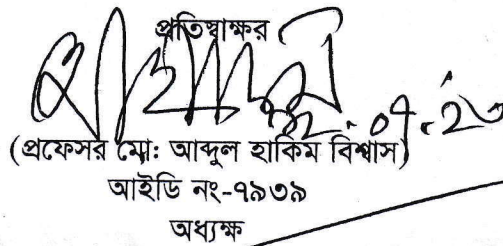 প্রতিস্বাক্ষর
(প্রফেসর মো: আব্দুল হাকিম বিশ্বাস)
আইডি নং-৭৯৩৯
অধ্যক্ষ